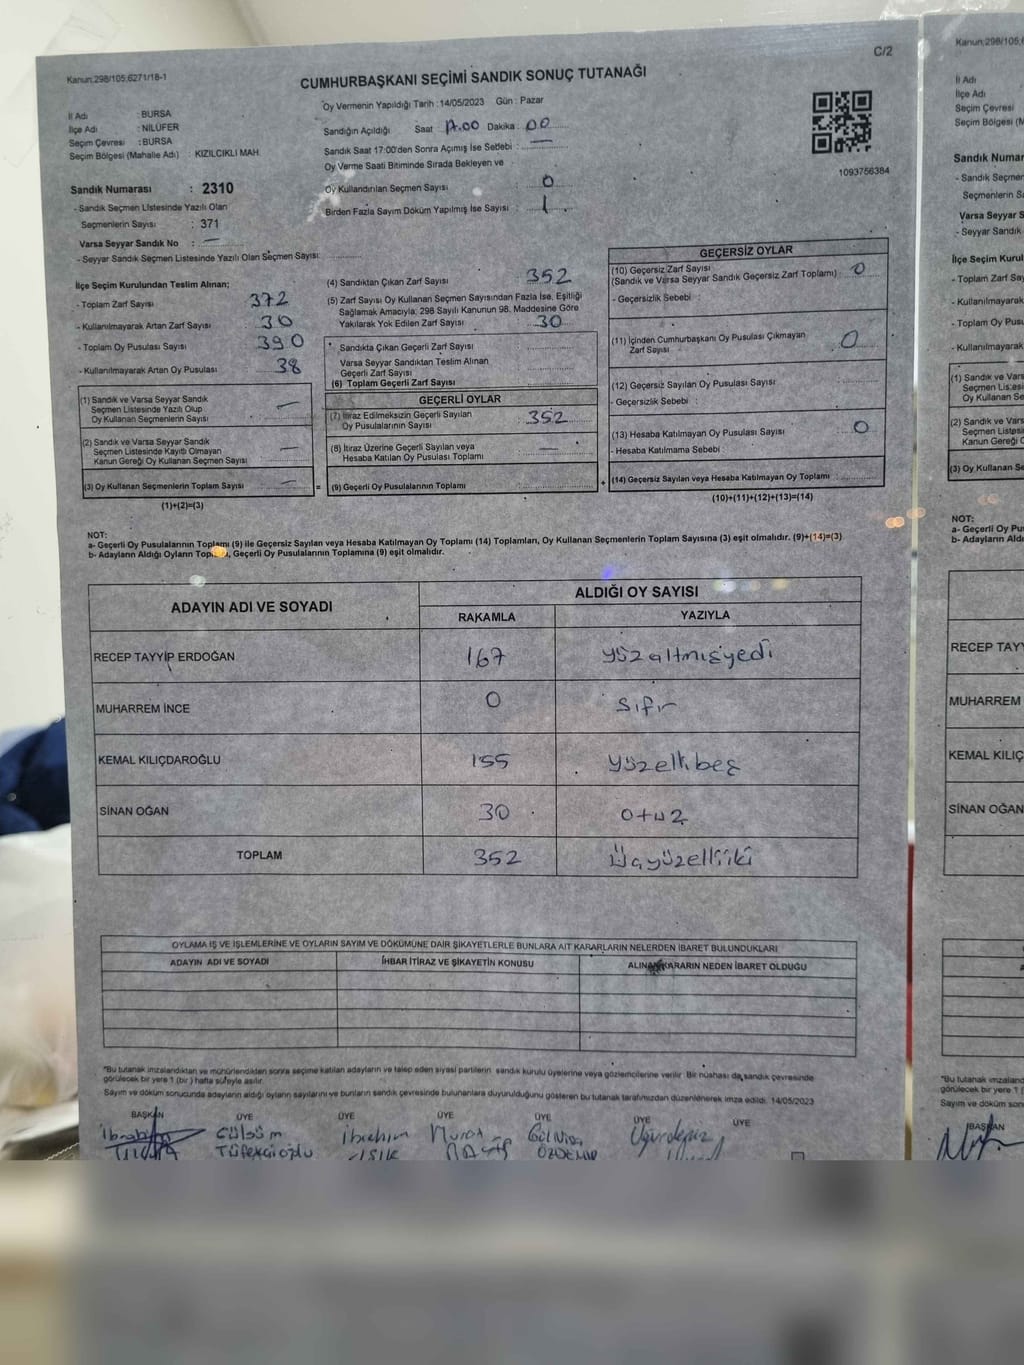 Kanun:298/105;6271/18-1
C/2
CUMHURBAŞKANI SEÇİMİ SANDIK SONUÇ TUTANAĞI
İl Adı : BURSA
İlçe Adı : NİLÜFER
Seçim Çevresi : BURSA
Seçim Bölgesi (Mahalle Adı) : KIZILCIKLI MAH.
Sandık Numarası : 2310
- Sandık Seçmen Listesinde Yazılı Olan
Seçmenlerin Sayısı : 371
Varsa Seyyar Sandık No : —
- Seyyar Sandık Seçmen Listesinde Yazılı Olan Seçmen Sayısı:
Oy Vermenin Yapıldığı Tarih : 14/05/2023 Gün : Pazar
Sandığın Açıldığı Saat : 17.00 Dakika : 00
Sandık Saat 17:00'den Sonra Açımış İse Sebebi : —
Oy Verme Saati Bitiminde Sırada Bekleyen ve
Oy Kullandırılan Seçmen Sayısı : 0
Birden Fazla Sayım Döküm Yapılmış İse Sayısı : 1
1093756384
İlçe Seçim Kurulundan Teslim Alınan;
- Toplam Zarf Sayısı : 372
- Kullanılmayarak Artan Zarf Sayısı : 30
- Toplam Oy Pusulası Sayısı : 390
- Kullanılmayarak Artan Oy Pusulası : 38
(1) Sandık ve Varsa Seyyar Sandık
Seçmen Listesinde Yazılı Olup
Oy Kullanan Seçmenlerin Sayısı : —
(2) Sandık ve Varsa Seyyar Sandık
Seçmen Listesinde Kayıtlı Olmayan
Kanun Gereği Oy Kullanan Seçmen Sayısı : —
(3) Oy Kullanan Seçmenlerin Toplam Sayısı : —
(1)+(2)=(3)
(4) Sandıktan Çıkan Zarf Sayısı : 352
(5) Zarf Sayısı Oy Kullanan Seçmen Sayısından Fazla İse, Eşitliği
Sağlamak Amacıyla; 298 Sayılı Kanunun 98. Maddesine Göre
Yakılarak Yok Edilen Zarf Sayısı : 30
Sandıkta Çıkan Geçerli Zarf Sayısı :
Varsa Seyyar Sandıktan Teslim Alınan
Geçerli Zarf Sayısı :
(6) Toplam Geçerli Zarf Sayısı :
GEÇERLİ OYLAR
(7) İtiraz Edilmeksizin Geçerli Sayılan
Oy Pusulalarının Sayısı : 352
(8) İtiraz Üzerine Geçerli Sayılan veya
Hesaba Katılan Oy Pusulası Toplamı : —
= (9) Geçerli Oy Pusulalarının Toplamı :
GEÇERSİZ OYLAR
(10) Geçersiz Zarf Sayısı
(Sandık ve Varsa Seyyar Sandık Geçersiz Zarf Toplamı) : 0
- Geçersizlik Sebebi :
(11) İçinden Cumhurbaşkanı Oy Pusulası Çıkmayan
Zarf Sayısı : 0
(12) Geçersiz Sayılan Oy Pusulası Sayısı :
- Geçersizlik Sebebi :
(13) Hesaba Katılmayan Oy Pusulası Sayısı : 0
- Hesaba Katılmama Sebebi :
+ (14) Geçersiz Sayılan veya Hesaba Katılmayan Oy Toplamı :
(10)+(11)+(12)+(13)=(14)
NOT:
a- Geçerli Oy Pusulalarının Toplamı (9) ile Geçersiz Sayılan veya Hesaba Katılmayan Oy Toplamı (14) Toplamları, Oy Kullanan Seçmenlerin Toplam Sayısına (3) eşit olmalıdır. (9)+(14)=(3)
b- Adayların Aldığı Oyların Toplamı, Geçerli Oy Pusulalarının Toplamına (9) eşit olmalıdır.
ADAYIN ADI VE SOYADI ALDIĞI OY SAYISI
RAKAMLA YAZIYLA
RECEP TAYYİP ERDOĞAN 167 yüzaltmışyedi
MUHARREM İNCE 0 sıfır
KEMAL KILIÇDAROĞLU 155 yüzellibeş
SİNAN OĞAN 30 otuz
TOPLAM 352 Üçyüzelliiki
OYLAMA İŞ VE İŞLEMLERİNE VE OYLARIN SAYIM VE DÖKÜMÜNE DAİR ŞİKAYETLERLE BUNLARA AİT KARARLARIN NELERDEN İBARET BULUNDUKLARI
ADAYIN ADI VE SOYADI İHBAR İTİRAZ VE ŞİKAYETİN KONUSU ALINAN KARARIN NEDEN İBARET OLDUĞU
*Bu tutanak imzalandıktan ve mühürlendikten sonra seçime katılan adayların ve talep eden siyasi partilerin sandık kurulu üyelerine veya gözlemcilerine verilir. Bir nüshası da sandık çevresinde
görülecek bir yere 1 (bir) hafta süreyle asılır.
Sayım ve döküm sonucunda adayların aldığı oyların sayılarını ve bunların sandık çevresinde bulunanlara duyurulduğunu gösteren bu tutanak tarafımızdan düzenlenerek imza edildi. 14/05/2023
BAŞKAN ÜYE ÜYE ÜYE ÜYE ÜYE ÜYE
İbrahim Gülsüm İbrahim Murat
Tüfekçioğlu IŞIK
Kanun:298/105;6
İl Adı
İlçe Adı
Seçim Çevresi
Seçim Bölgesi (M
Sandık Numar
- Sandık Seçmen
Seçmenlerin Sa
Varsa Seyyar S
- Seyyar Sandık
İlçe Seçim Kurul
- Toplam Zarf Say
- Kullanılmayarak
- Toplam Oy Pusu
- Kullanılmayarak
(1) Sandık ve Vars
Seçmen Listesi
Oy Kullanan Se
(2) Sandık ve Vars
Seçmen Listesi
Kanun Gereği O
(3) Oy Kullanan Se
NOT:
a- Geçerli Oy Pu
b- Adayların Aldı
RECEP TAYY
MUHARREM
KEMAL KILIÇ
SİNAN OĞAN
*Bu tutanak imzaland
görülecek bir yere 1 (
Sayım ve döküm son
BAŞKAN